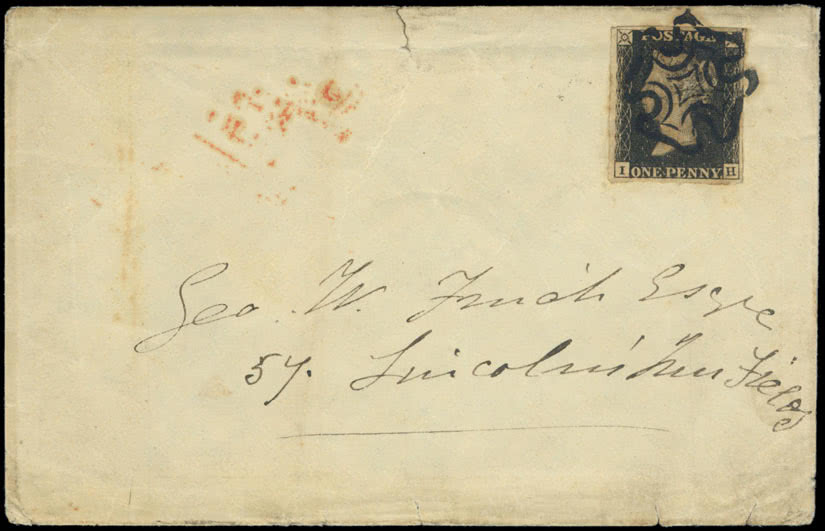 POSTAGE
I ONE PENNY H
Geo. W. Finch Esqre
57. Lincoln's Inn Fields